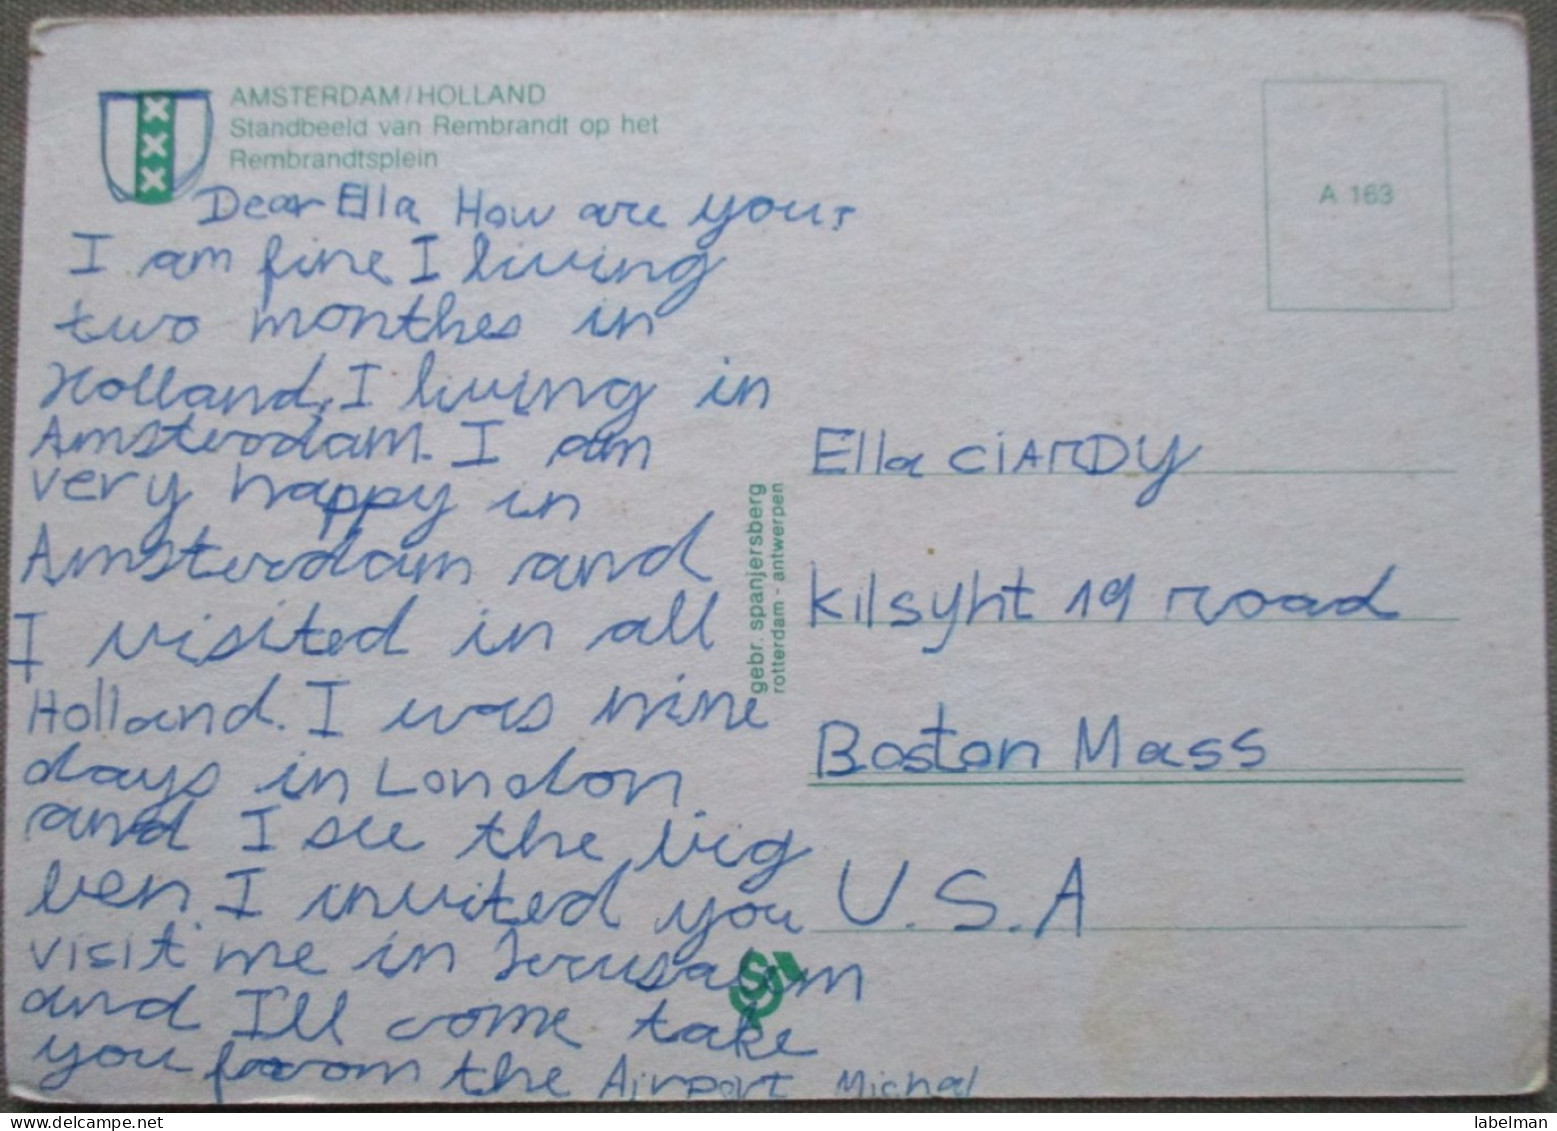 AMSTERDAM/HOLLAND
Standbeeld van Rembrandt op het
Rembrandtsplein
A 163
Dear Ella How are you?
I am fine I living
two monthes in
Holland, I living in
Amsterdam. I am
very happy in
Amsterdam and
I visited in all
Holland. I was nine
days in London
and I see the big
ben. I invited you
visit me in Jerusalem
and I'll come take
you from the Airport Michal
gebr. spanjersberg
rotterdam - antwerpen
Ella CiARDy
kilsyht 19 road
Boston Mass
U.S.A
labelman